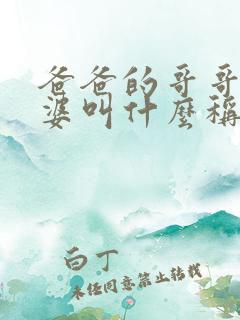 爸爸的哥哥
婆叫什麼稱
白丁
未经同意禁止转载